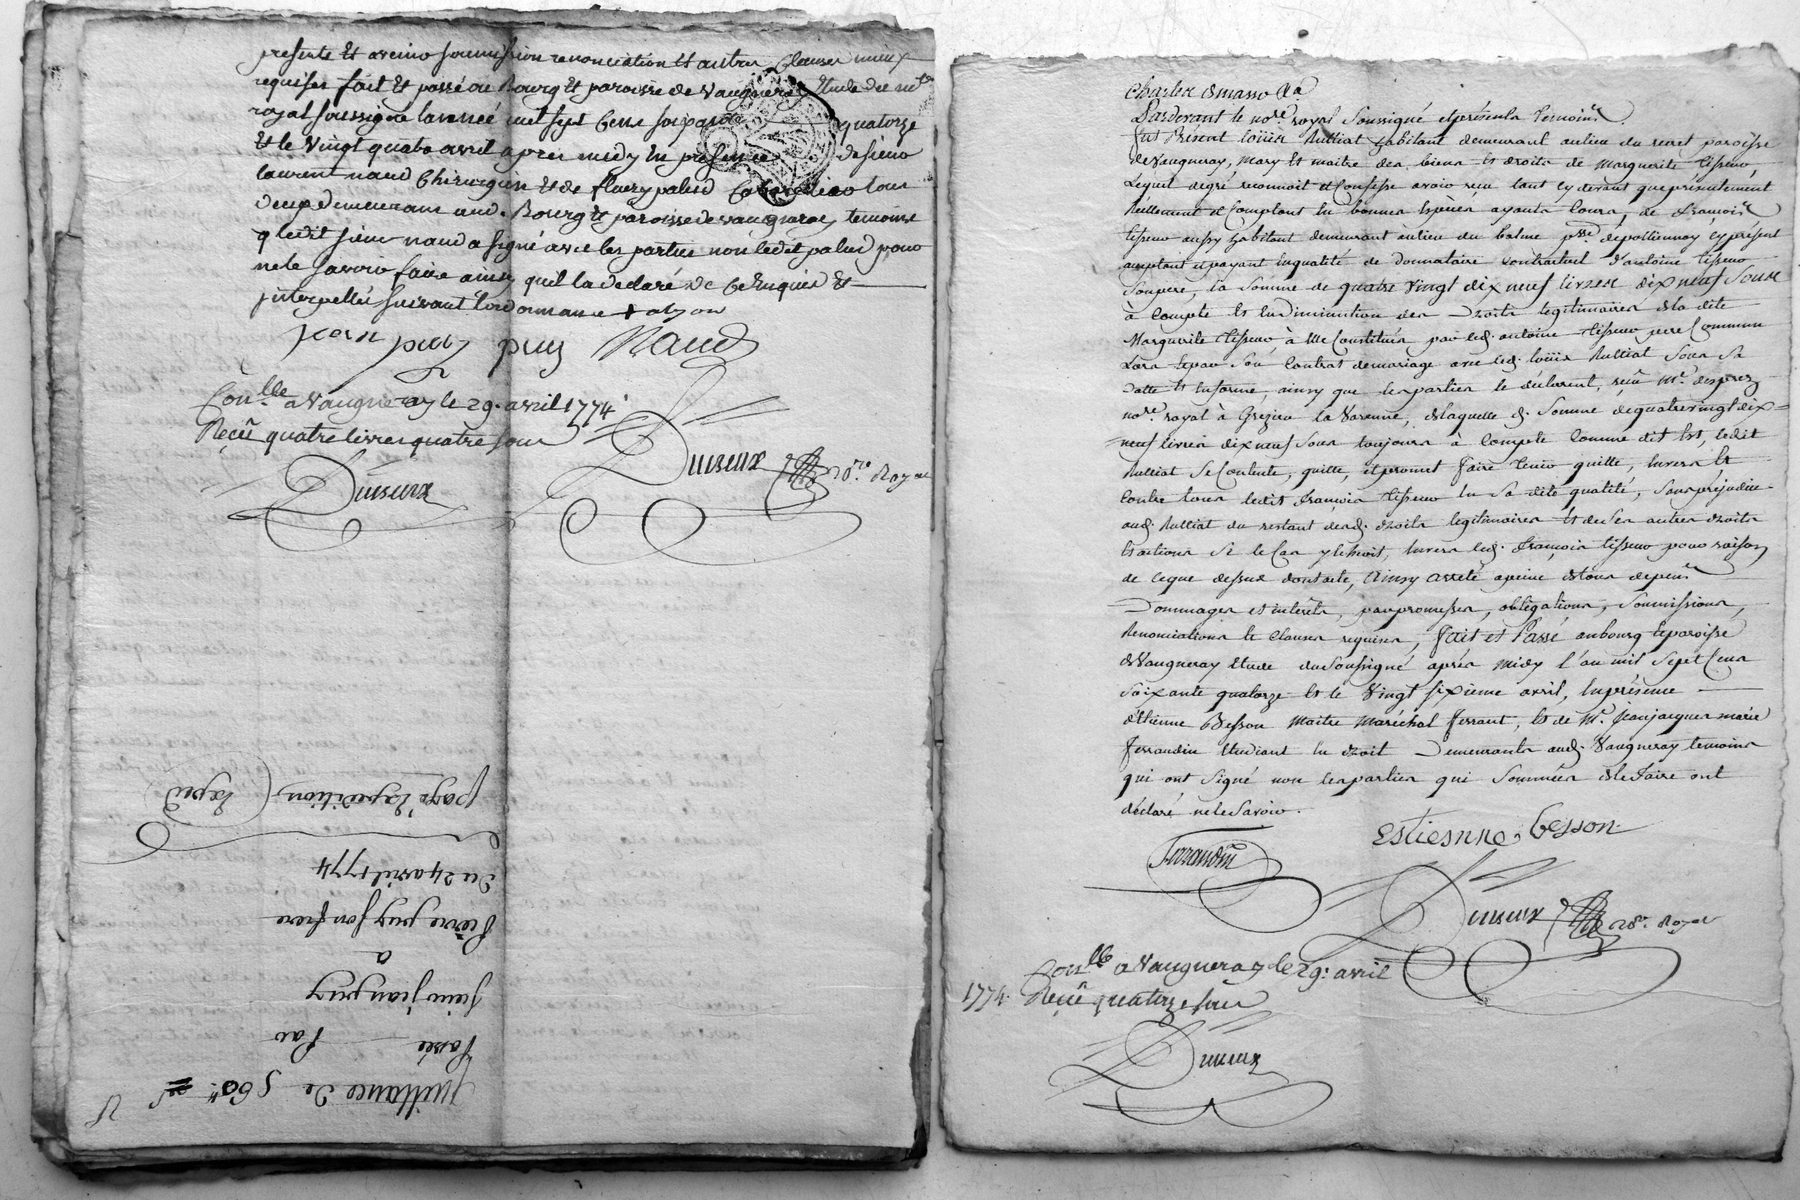 presente et avenir soumission renonciation et autres clauses mieux
requises fait et passé au Bourg et paroisse de vaugneray Etude du not.re
royal soussigné lannée mil sept cens soixante quatorze
et le vingt quatre avril apres midy en presence de sieur
laurent naud Chirurgien et de fleury palud Cabaretier tous
deux demeurans aud. Bourg et paroisse de vaugneray temoins
q ledit sieur naud a signé avec les parties non ledit palud pour
ne le savoir faire ainsy quil la declaré de ce Enquis et
interpellés suivant lordonnance
jean puy puy Naud
Con.lle a Vaugneray le 29. avril 1774.
Reçû quatre livres quatre sous
Duiseux no.re Royal
Duiseux
Quittance de 560.#
Passée Par
sieur jean puy
a
Pierre puy son frere
du 24 avril 1774
paye l'expedition (Exped
Pardevant le no.re royal Soussigné et présents témoins
fut Présent loüis Rulliat habitant demeurant au lieu du recret paroisse
de Vaugneray, mary et maitre des biens et droits de Marguerite tisseur,
Lequel degré reconnoit et Confesse avoir reçu tant cy devant que présentement
Réellement et Comptant En bonnes Espèces ayants Cours, de françois
tisseur aussy habitant demeurant au lieu du balme p.sse de pollionnay cy présent
acceptant et payant En qualité de Donnataire Contractuel d'antoine tisseur
Son pere, la Somme de quatre vingt dix neuf livres dix neuf Sous
à Compte et En diminution des Droits légitimaires de la dite
Marguerite tisseur, à Elle Constitués par led. antoine tisseur pere Commun
Lors de son Contrat de mariage avec led. loüis Rulliat Sous Sa
Datte et En forme, ainsy que les parties le déclarent, reçu M.e desprez
no.re royal à Grezieu la Varenne, de laquelle d. Somme de quatre vingt dix=
neuf livres dix neuf Sous toujours à Compte Comme dit Est, ledit
Rulliat Se Contente, quitte, et promet faire tenir quitte, Envers Et
Contre tous ledit françois tisseur En Sa dite qualité, Sans préjudice
aud. Rulliat du restant desd. droits légitimaires Et de Ses autres droits
Et actions Si le Cas y Echoit, Envers led. françois tisseur pour raison
de ce que dessus dont acte, Ainsy arrêté à peine de tous depens
Dommages et intérêts, par promesses, obligations, Soumissions,
Renonciations Et Clauses requises, fait et Passé au bourg Et paroisse
de Vaugneray Etude du Soussigné après Midy l'an mil Sept Cens
Soixante quatorze Et le Vingt sixieme avril, En présence
d'Etienne Besson Maitre Maréchal ferrant, Et de M.e Jean jacques marie
ferrandin Etudiant En droit Demeurants aud. Vaugneray temoins
qui ont Signé non les parties qui Sommées de le faire ont
déclaré ne le Savoir.
Estiesnne Besson
Ferrandin
Duiseux no.re Royal
Con.lle a Vaugneray le 29. avril
1774. Reçû quatorze sous
Duiseux